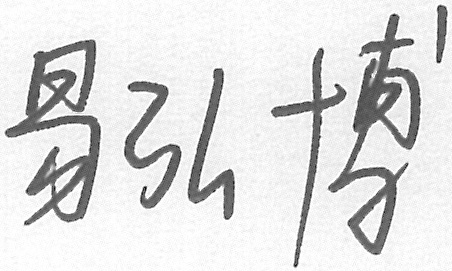 易弘博